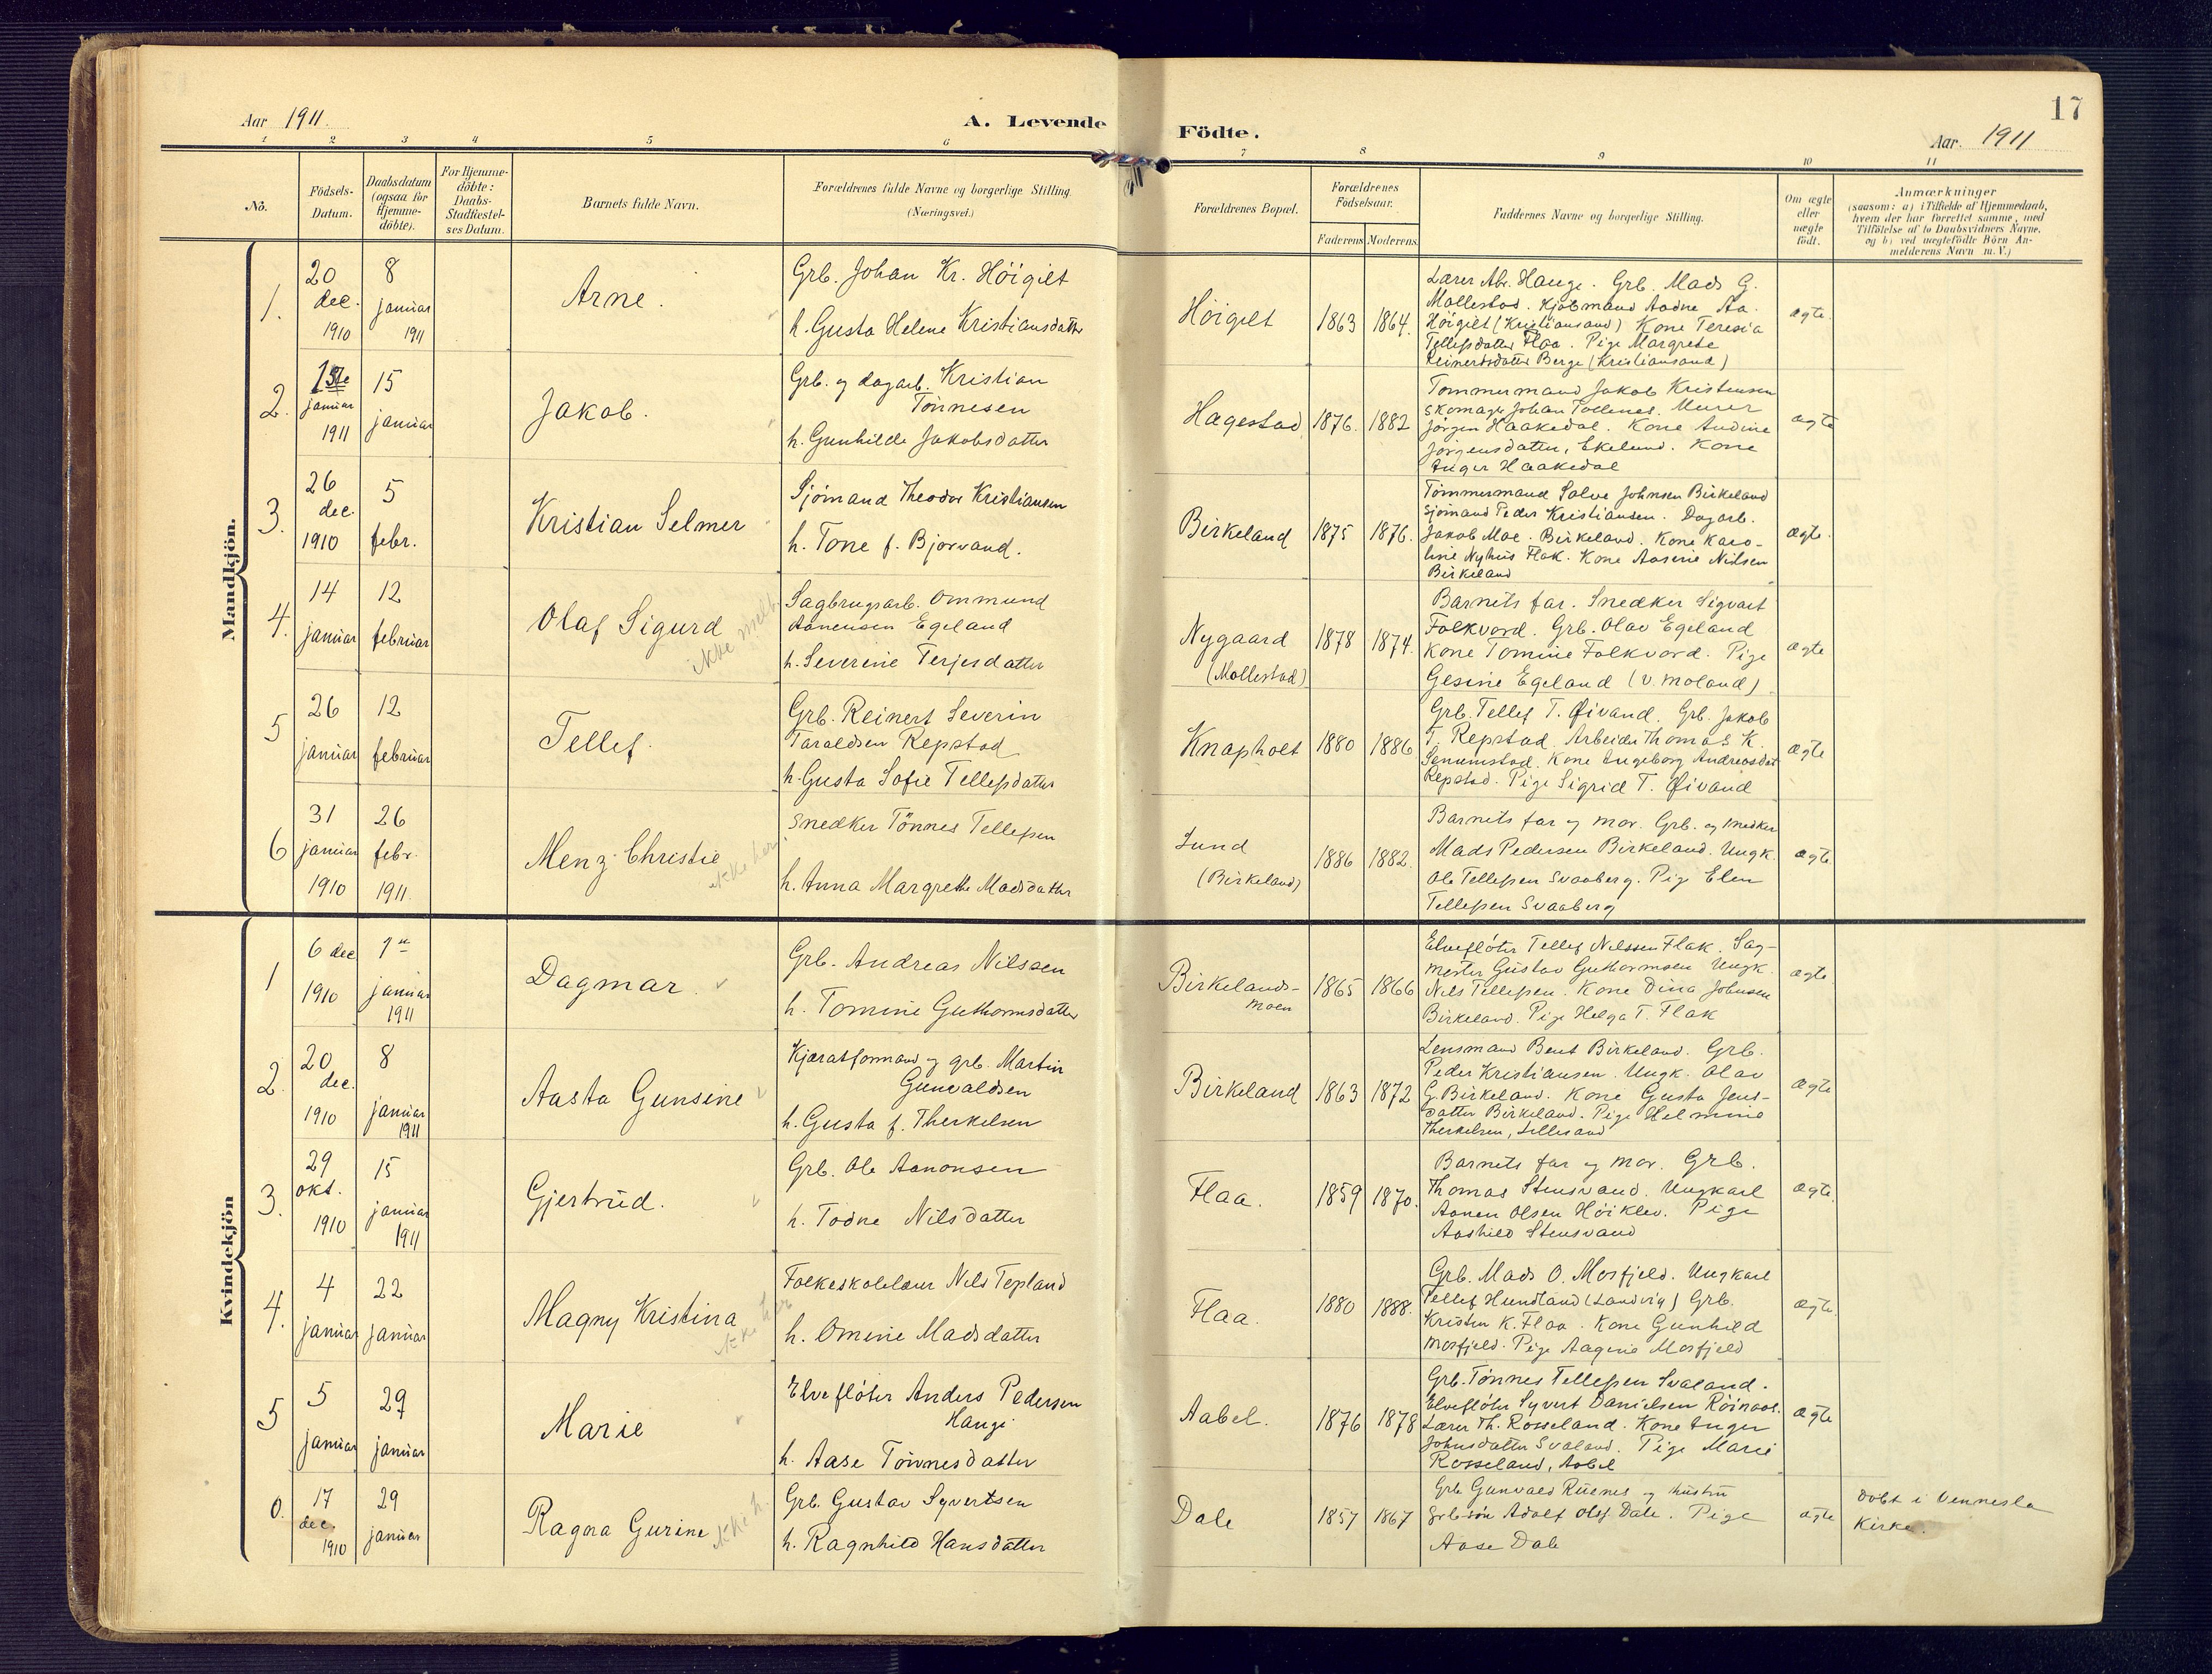 17
Aar 1911.
A. Levende Födte.
Aar. 1911
1 2 3 4 5 6 7 8 9 10 11
No.
Födsels-
Datum.
Daabsdatum
(ogsaa for
Hjemme-
döbte).
For Hjemme-
döbte:
Daabs-
Stadfæstel-
ses Datum.
Barnets fulde Navn.
Forældrenes fulde Navne og borgerlige Stilling.
(Næringsvei.)
Forældrenes Bopæl.
Forældrenes
Födselsaar.
Faderens Moderens.
Faddernes Navne og borgerlige Stilling.
Om ægte
eller
uægte
födt.
Anmærkninger
(saasom: a) i Tilfælde af Hjemmedaab,
hvem der har forrettet samme, med
Tilföielse af to Daabsvidners Navne,
og b) ved uægtefödte Börn An-
melderens Navn m. V.)
Mandkjön.
1.
20
dec.
1910
8
januar
1911
Arne.
Grb. Johan Kr. Höigilt
h. Gusta Helene Kristiansdatter
Höigilt
1863
1864.
Lærer Abr. Hauge. Grb. Mads G.
Mollestad. Kjöbmand Aadne Aa.
Höigilt (Kristiansand) Kone Teresia
Tellefsdatter Flaa. Pige Margrete
Reinertsdatter Berge (Kristiansand)
ægte.
2.
1ste
januar
1911
15
januar
Jakob.
Grb. og dagarb. Kristian
Tönnesen
h. Gunhilde Jakobsdatter
Hagestad
1876.
1882
Tømmermand Jakob Kristensen
Skomager Johan Murer
Jörgen Haakedal. Kone Andine
Jörgensdatter, Ekelund. Kone
Inger Haakedal
ægte
3.
26
dec.
1910
5
febr.
Kristian Selmer
Sjömand Theodor Kristiansen
h. Tone f. Bjorvand.
Birkeland
1875
1876.
Tömmermand Salve Johnsen Birkeland
Sjömand Peder Kristiansen. Dagarb.
Jakob Moe. Birkeland. Kone Karo-
line Nyhus Flak. Kone Aasene Nilsen
Birkeland
ægte.
4.
14
januar
12
februar
Olaf Sigurd
ikke
Sagbrugsarb. Ommund
Aanensen Egeland
h. Severine Terjesdatter
Nygaard
(Mollestad)
1878
1874.
Barnets far. Snedker Sigvart
Folkvord. Grb. Olav Egeland
Kone Tomine Folkvord. Pige
Gesine Egeland (V. Moland)
ægte
5
26
januar
12
februar
Tellef.
Grb. Reinert Severin
Taraldsen Repstad
h. Gusta Sofie Tellefsdatter
Knapholt
1880
1886
Grb. Tellef T. Øivand. Grb. Jakob
T. Repstad. Arbeider Thomas K.
Senumstad. Kone Ingeborg Andreasdat
Repstad. Pige Sigrid T. Øivand
ægte
6
31
januar
1910
26
febr.
1911.
Menz Christie
ikke her
Snedker Tönnes Tellefsen
h. Anna Margrethe Madsdatter
Lund
(Birkeland)
1886
1882.
Barnets far og mor. Grb. og snedker
Mads Pedersen Birkeland. Ungk.
Ole Tellefsen Svaaberg. Pige Elen
Tellefsen Svaaberg
ægte
Kvindekjön
1
6 dec
1910
1ste
januar
1911
Dagmar.
Grb. Andreas Nilssen
h. Tomine Guthormsdatter
Birkelands-
moen
1865
1866
Elveflöter Tellef Nilssen Flak. Sag-
mester Gustav Guthormsen Ungk.
Nils Tellefsen. Kone Dina Johnsen
Birkeland. Pige Helga T. Flak
ægte
2.
20
dec.
1910
8
januar
1911
Aasta Gunsine
Kjæratformand og grb. Martin
Gunvaldsen
h. Gusta f. Therkelsen
Birkeland
1863
1872
Lensmand Bent Birkeland. Grb.
Peder Kristiansen. Ungk. Olav
G. Birkeland. Kone Gusta Jens-
datter Birkeland. Pige Helmine
Therkelsen, Lillesand
ægte
3.
29
okt.
1910
15
januar
1911
Gjertrud.
Grb. Ole Aanonsen
h. Todne Nilsdatter
Flaa.
1859
1870.
Barnets far og mor. Grb.
Thomas Stensvand. Ungkarl
Aanen Olsen Höiklev. Pige
Aashild Stensvand
ægte.
4.
4
januar
22
januar
Magny Kristina
ikke her
Folkeskolelærer Nils Topland
h. Omine Madsdatter
Flaa.
1880
1888.
Grb. Mads O. Mosfjeld. Ungkarl
Tellef Hundland (Landvig) Grb.
Kristen K. Flaa. Kone Gunhild
Mosfjeld. Pige Aagine Mosfjeld
ægte.
5
5
januar
29
januar
Marie
Elveflöter Anders Pedersen
Hauge
h. Aase Tönnesdatter
Aabel.
1876
1878
Grb. Tönnes Tellefsen Svaland.
Elveflöter Syvert Danielsen Röinaas.
Lærer Th. Rosseland. Kone Inger
Johnsdatter Svaland. Pige Marie
Rosseland, Aabel
ægte
0.
17
dec.
1910
29
januar
Ragna Gurine
ikke h.
Grb. Gustav Syvertsen
h. Ragnhild Hansdatter
Dale
1857
1867
Grb. Gunvald Ruenes og hustru
Grb.sön Adolf Olaf Dale. Pige
Aase Dale
ægte
Döbt i Vennesla
Kirke.